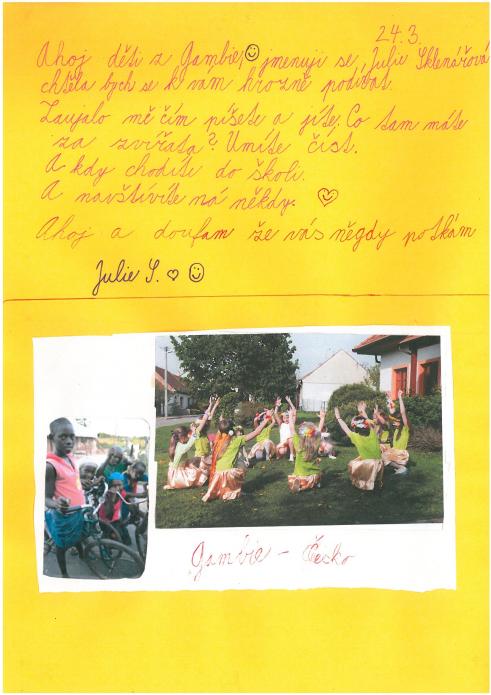 24.3.
Ahoj děti z Gambie, jmenuji se, Julie Sklenářová
chtěla bych se k vám hrozně podívat.
Zaujalo mě čím píšete a jíte. Co tam máte
za zvířata? Umíte číst.
A kdy chodíte do školi.
A navštívíte ná někdy.
Ahoj a doufam že vás něgdy potkám
Julie S.
Gambie - Česko